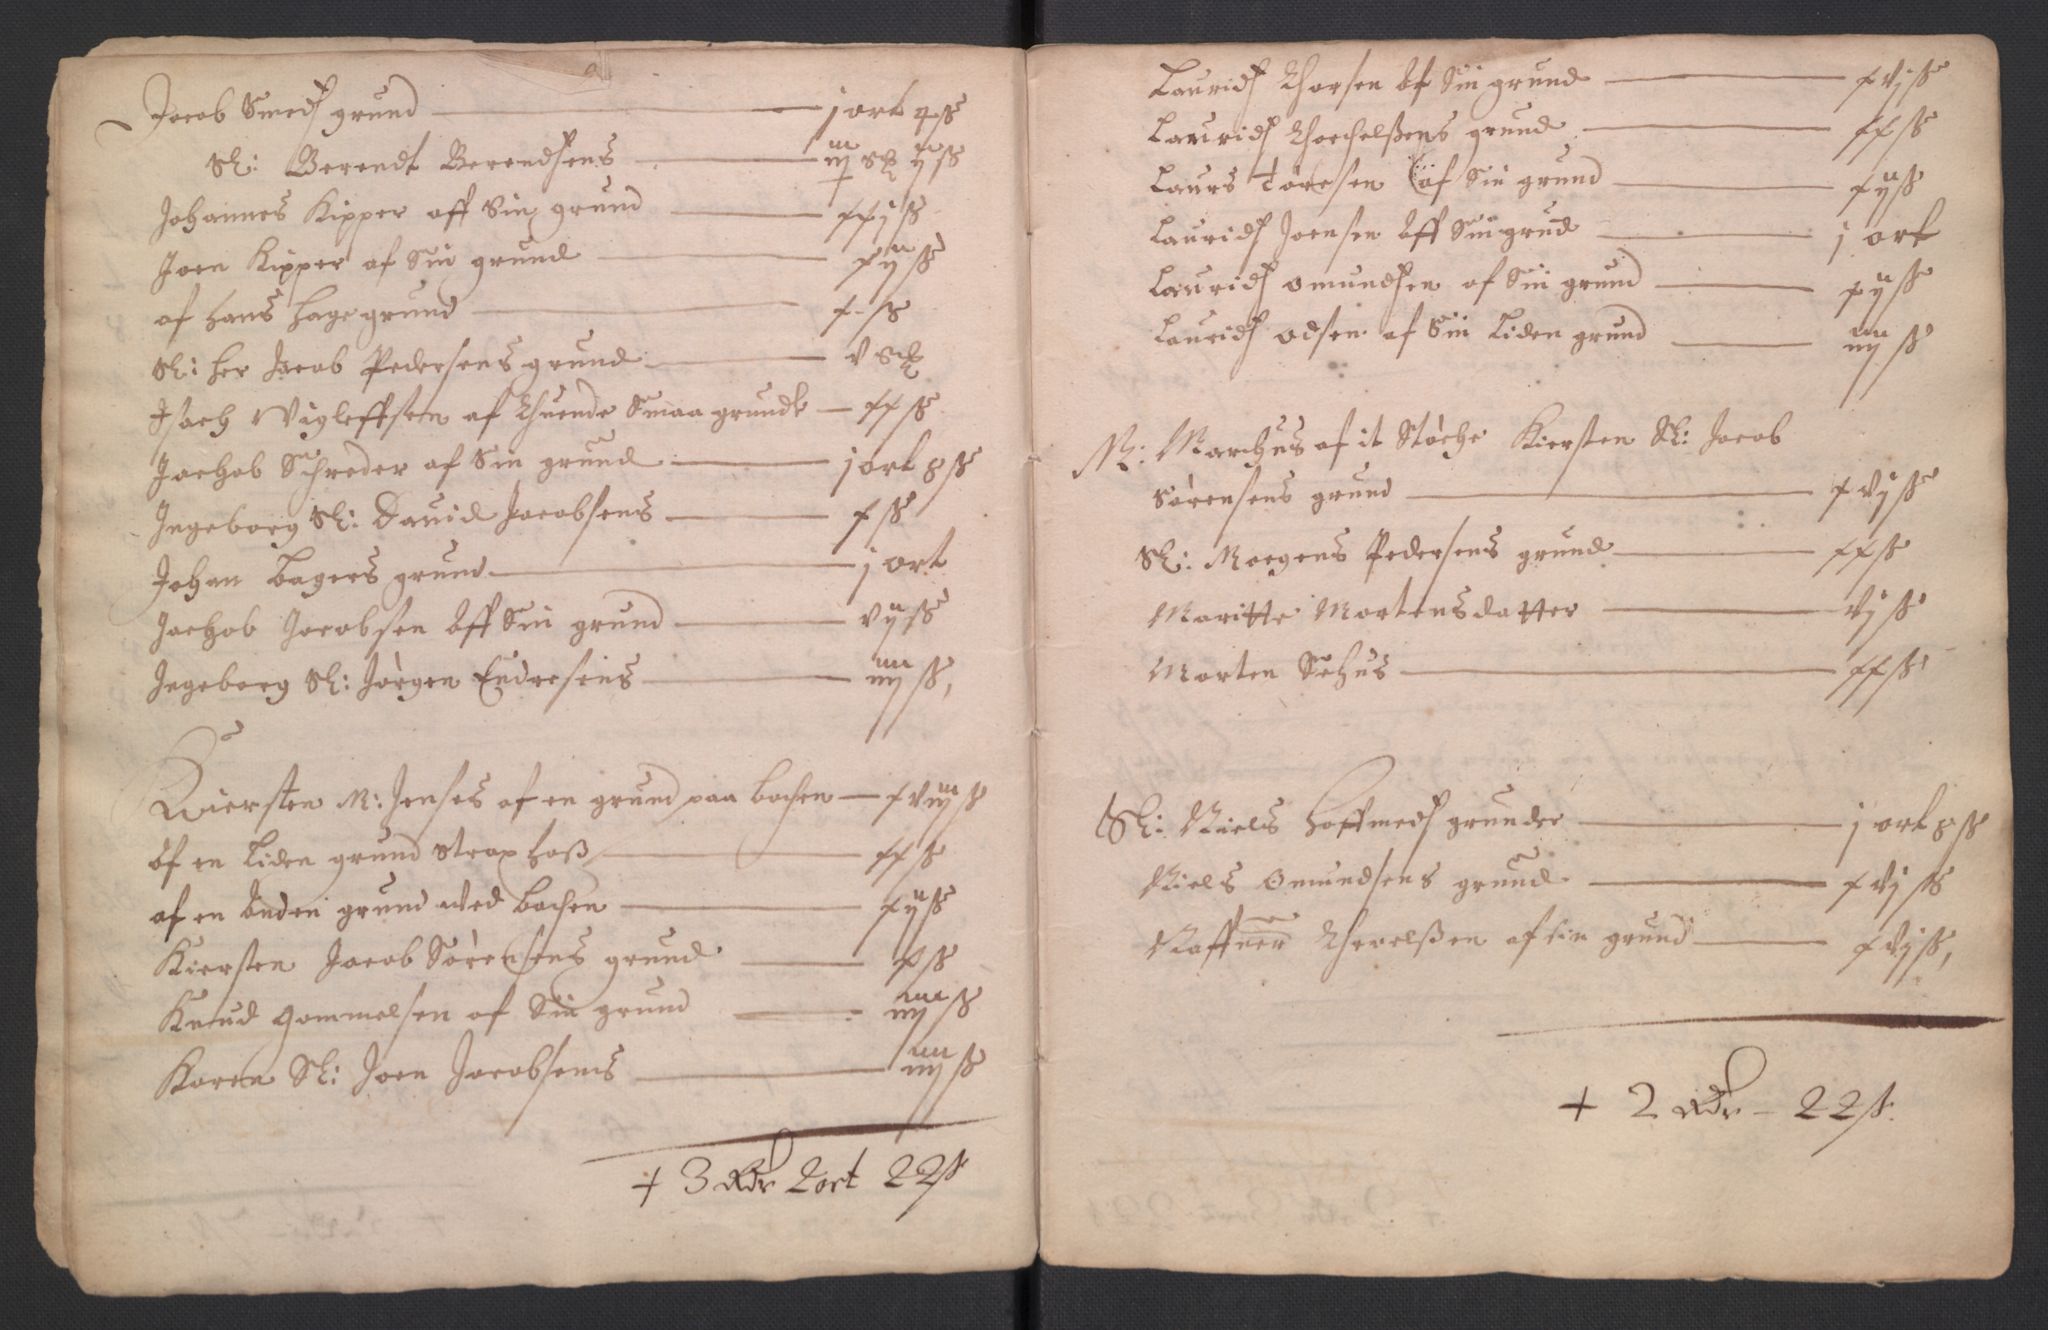 Jacob Smeds grund — j ort 4 ß
Sl: Berendt Berendsens — iij
Johannes Kipper aff Sin grund — xxj ß
Joen Kipper af Sin grund — xij ß
af Hans Hage grund — x ß
Sl: Her Jacob Pedersens grund — v
Isach Wigleffsen af thuende Smaa grundt — xx ß
Jachob Schreder af Sin grund — j ort 8 ß
Ingeborg Sl: Dauid Jacobsens — x ß
Johan Bagers grund — j ort
Jachob Jacobsen Aff Sin grund — vij ß
Ingeborg Sl: Jørgen Endresens — iiij ß
Kiersten M: Jenses af en grund paa bachen — xviij ß
Af en Liden grund strax hoß — xx ß
af en Anden grund wed bachen — xij ß
Kiersten Jacob Sørensens grund — x ß
Knud Gommelsen af Sin grund — iiij ß
Karen Sl: Joen Jacobsens — iiij ß
+ 3 Rdr 2 ort 22 ß
Lauridz Thorsen Af Sin grund — xvj ß
Lauridz Thorchelßens grund — xx ß
Laurs Tøresen af Sin grund — xij ß
Lauridz Joensen Aff Sin grud — j ort
Lauridz omundsen af Sin grund — xij ß
Lauridz odsen af Sin Liden grund — iiij ß
M: Marchus af it Støche Kiersten Sl: Jacob
Sørensens grund — xvj ß
Sl: Moegens Pedersens grund — xx ß
Maritte Mortensdatter — vj ß
Morten Sehus — xx ß
Sl: Niels Hoffmeds grunder — j ort 8 ß
Niels Omundsens grund — xvj ß
Raffner af sin grund — xvj ß
+ 2 Rdr – 22 ß